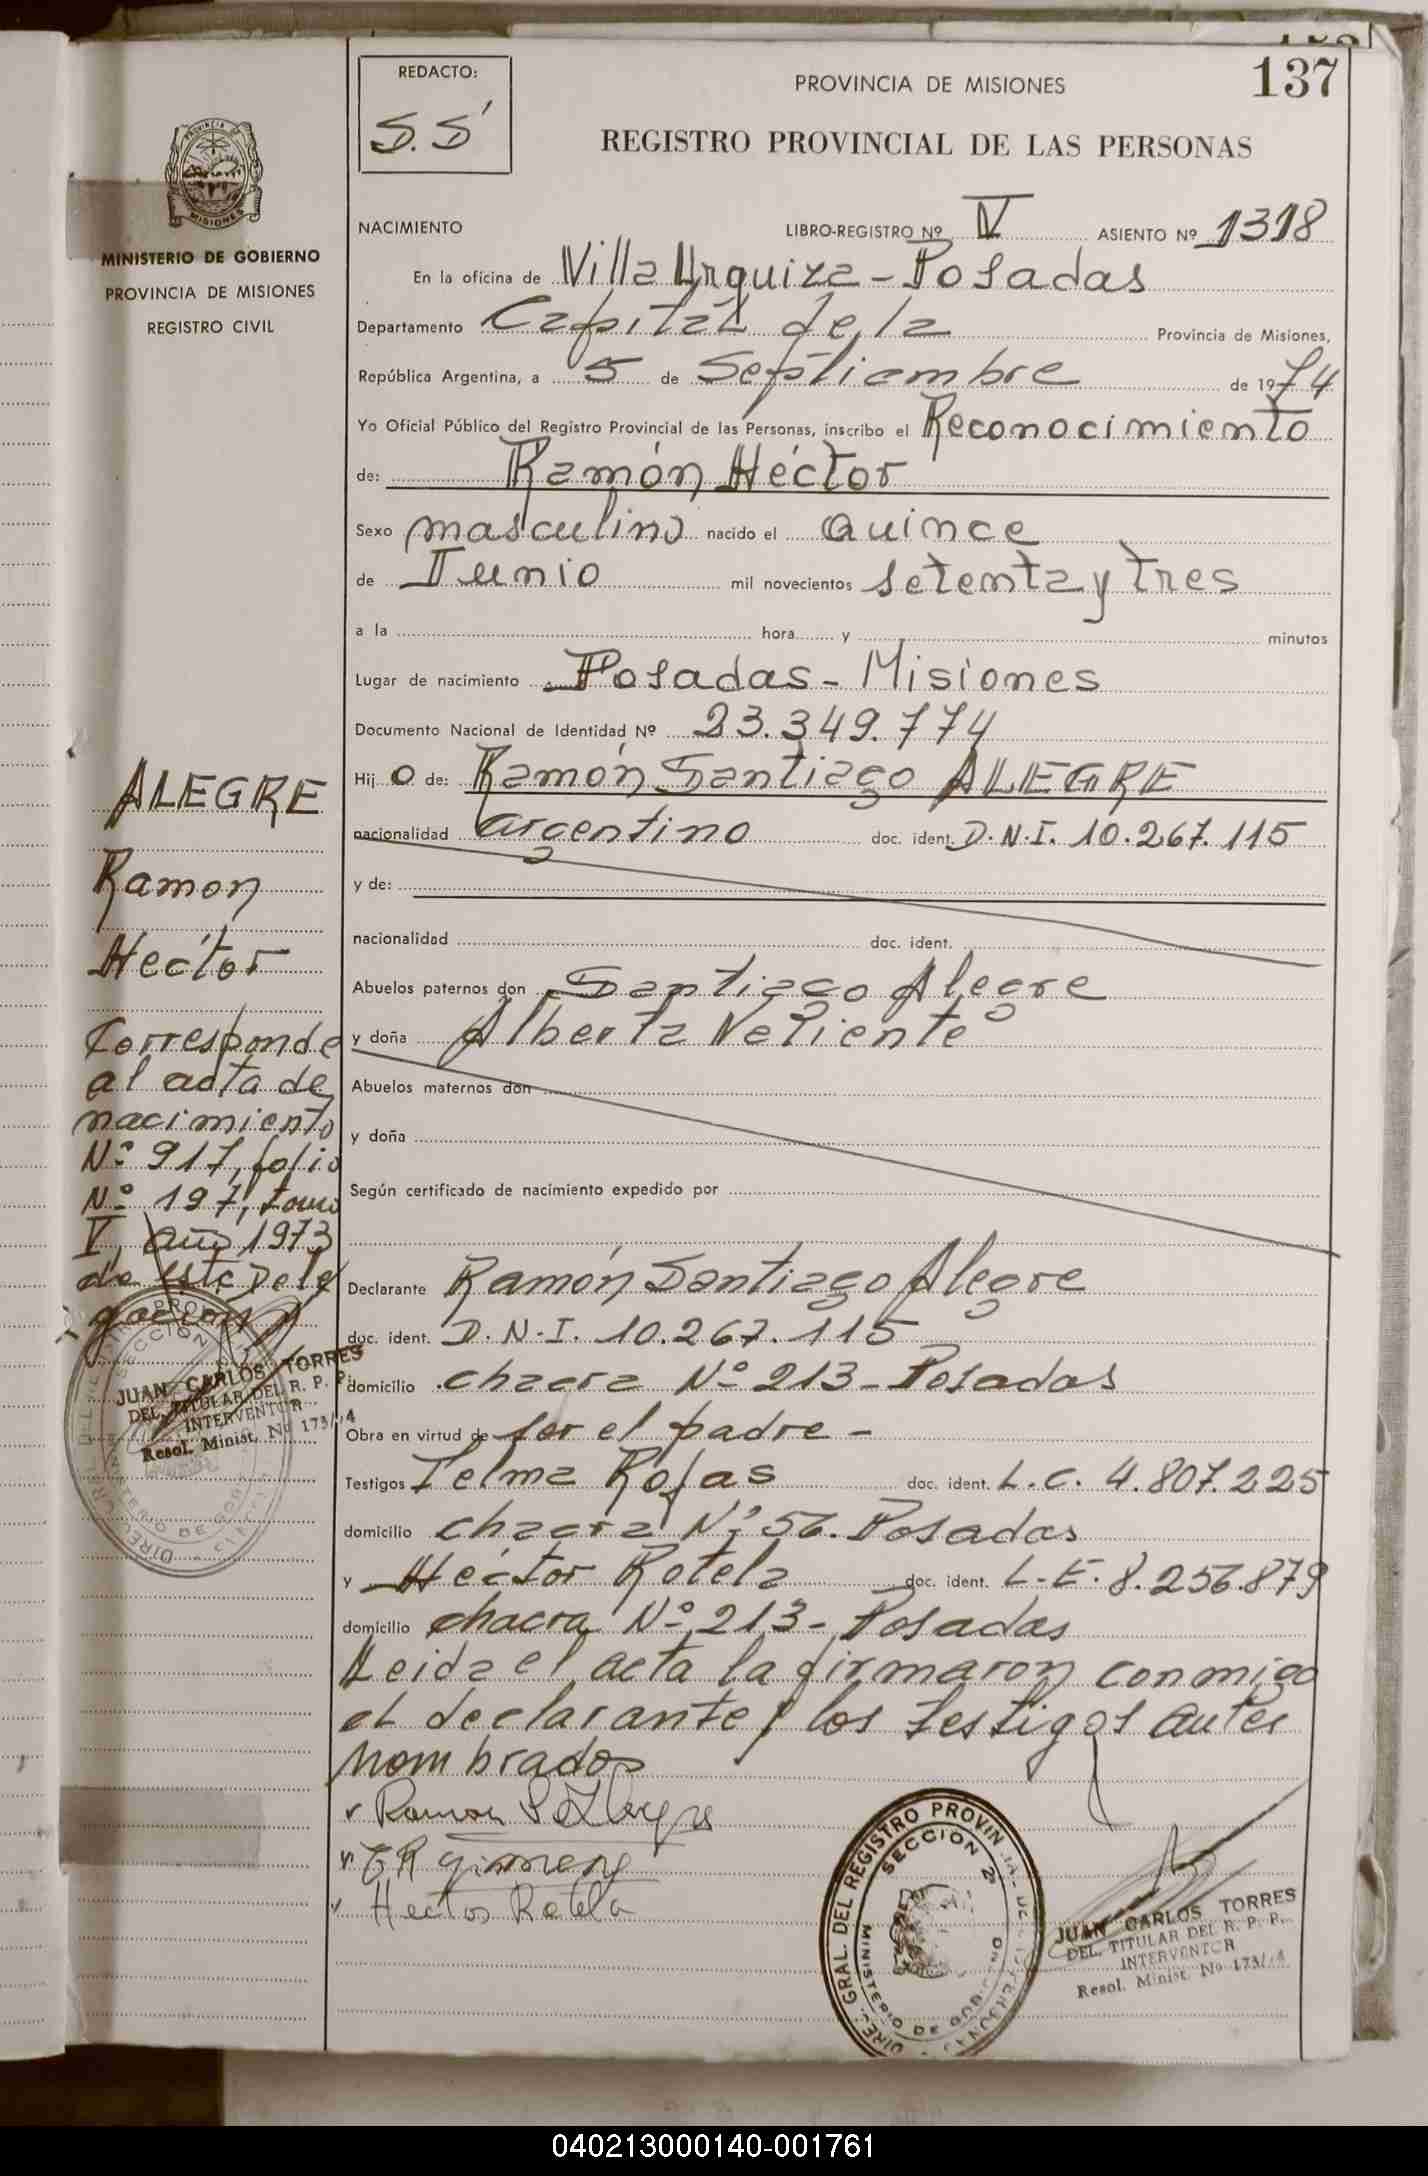 137
REDACTO:
S.S
PROVINCIA DE MISIONES
REGISTRO PROVINCIAL DE LAS PERSONAS
PROVINCIA DE
MISIONES
MINISTERIO DE GOBIERNO
PROVINCIA DE MISIONES
REGISTRO CIVIL
NACIMIENTO LIBRO-REGISTRO Nº IV ASIENTO Nº 1318
En la oficina de Villa Urquiza - Posadas
Departamento Capital de la Provincia de Misiones,
República Argentina, a 5 de Septiembre de 1974
Yo Oficial Público del Registro Provincial de las Personas, inscribo el Reconocimiento
de: Ramón Héctor
Sexo masculino nacido el Quince
de Junio mil novecientos setenta y tres
a la hora y minutos
Lugar de nacimiento Posadas - Misiones
Documento Nacional de Identidad Nº 23.349.774
Hijo de: Ramón Santiago ALEGRE
nacionalidad argentino doc. ident. D.N.I. 10.267.115
y de:
nacionalidad doc. ident.
Abuelos paternos don Santiago Alegre
y doña Alberta Valiente
Abuelos maternos don
y doña
Según certificado de nacimiento expedido por
Declarante Ramón Santiago Alegre
doc. ident. D.N.I. 10.267.115
domicilio chacra Nº 213 - Posadas
Obra en virtud de ser el padre -
Testigos Telma Rojas doc. ident. L.C. 4.807.225
domicilio chacra Nº 56. Posadas
y Héctor Rotela doc. ident. L.E. 8.256.879
domicilio chacra Nº 213 - Posadas
Leida el acta la firmaron conmigo
el declarante y los testigos antes
nombrados
Ramon S Alegre
T R Gimenez
Hector Rotela
ALEGRE
Ramon
Héctor
Corresponde
al acta de
nacimiento
Nº 917, folio
Nº 197, tomo
V, año 1973
de esta Dele
gación
JUAN CARLOS TORRES
DEL. TITULAR DEL R. P. P.
INTERVENTOR
Resol. Minist. Nº 173/74
DIREC. GRAL. DEL REGISTRO PROVINCIAL DE LAS PERSONAS
SECCION 2ª
MINISTERIO DE GOBIERNO
JUAN CARLOS TORRES
DEL. TITULAR DEL R. P. P.
INTERVENTOR
Resol. Minist. Nº 173/74
040213000140-001761